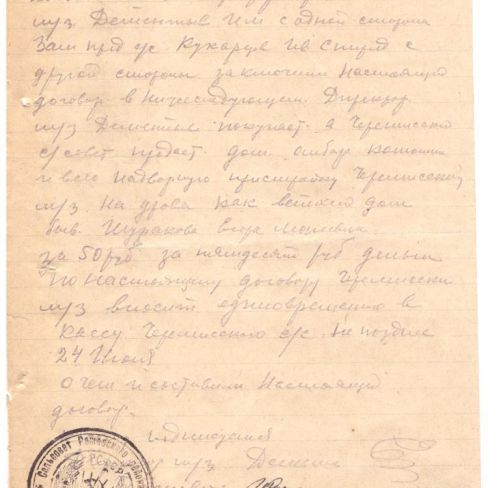 муз Дементьев И м с одной стороны
Зам пред с/с Кухарцев Ив Спирид с
другой стороны заключили настоящий
договор в нижеследующем. Директор
муз Дементьев покупает а Черемисский
с/совет продает дом амбар конюшни
и всю надворную пристройку Черемисский
муз на дрова как ветхий дом
быв. Шуракова Егора
за 50 руб за пятдесят руб деньги
по настоящему договору Черемисский
муз вносит единовременно в
кассу Черемисского с/с не позднее
24 Июля
о чем и составили настоящий
договор.
муз Дементьев
Сельсовет
РСФСР